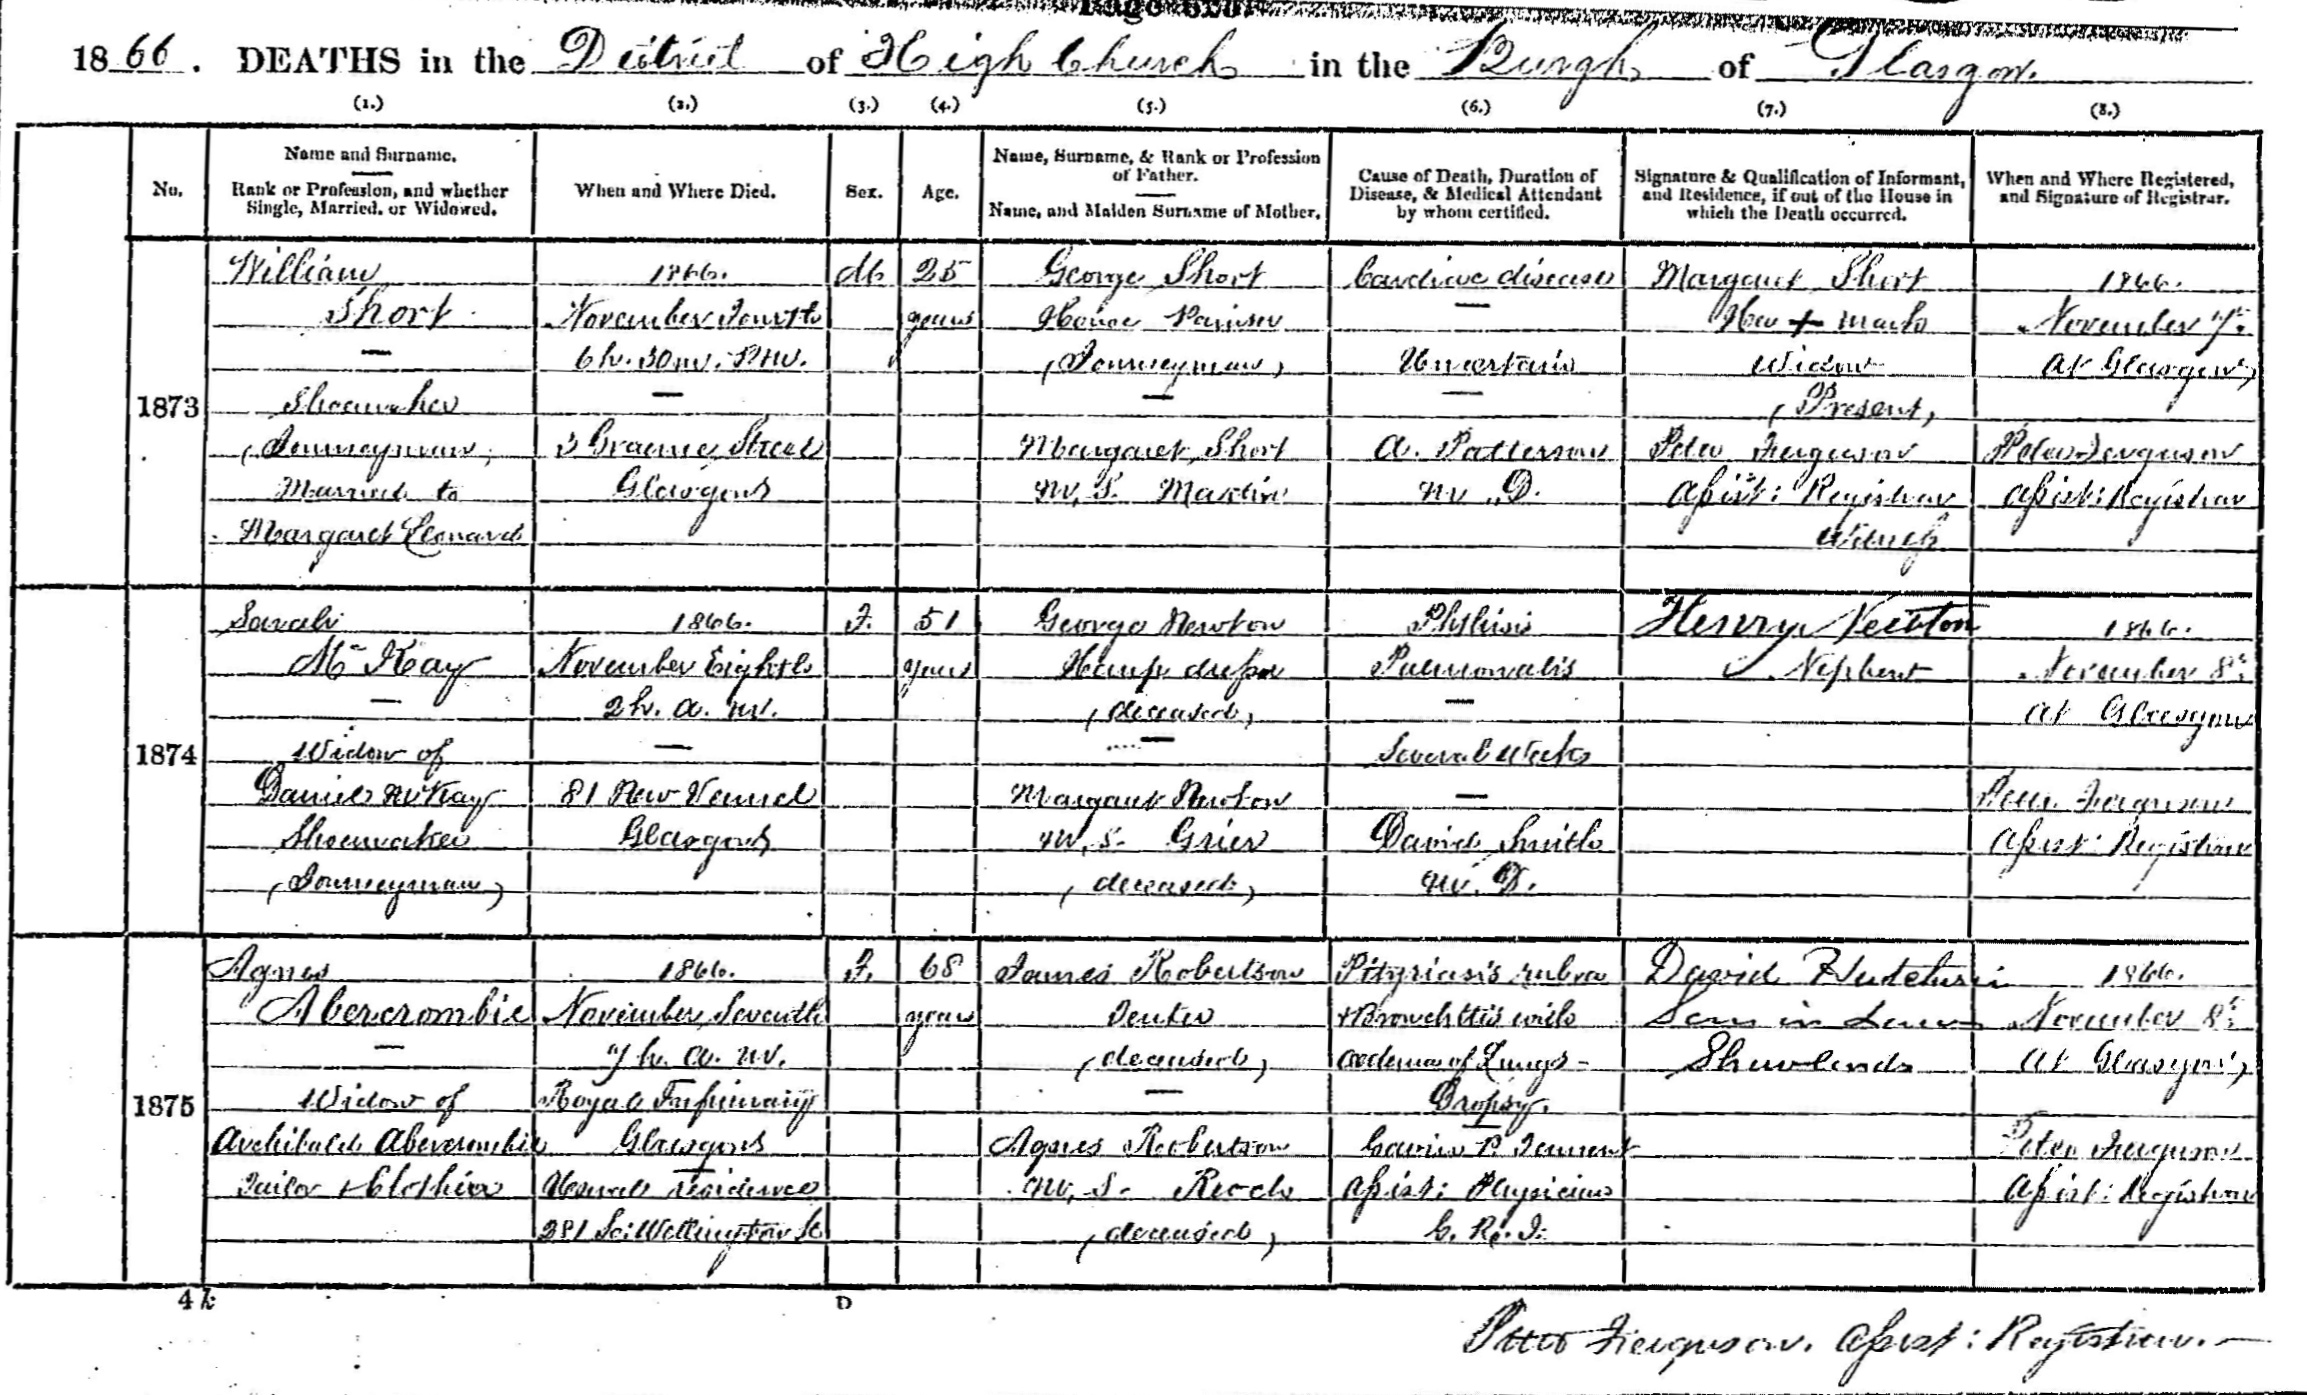 1866. DEATHS in the District of High Church in the Burgh of Glasgow.
(1.) (2.) (3.) (4.) (5.) (6.) (7.) (8.)
No.
Name and Surname.
Rank or Profession, and whether
Single, Married, or Widowed.
When and Where Died.
Sex.
Age.
Name, Surname, & Rank or Profession
of Father.
Name, and Maiden Surname of Mother.
Cause of Death, Duration of
Disease, & Medical Attendant
by whom certified.
Signature & Qualification of Informant,
and Residence, if out of the House in
which the Death occurred.
When and Where Registered,
and Signature of Registrar.
1873
William
Short
—
Shoemaker
(Journeyman)
Married to
Margaret Leonard
1866.
November Fourth
6 h. 30 m. P.M.
—
3 Graeme Street
Glasgow
M.
25
years
George Short
House Painter
(Journeyman)
—
Margaret Short
M.S. Martin
Cardiac disease
—
Uncertain
—
A. Patterson
M.D.
Margaret Short
Her + mark
Widow
(Present)
Peter Ferguson
Assist: Registrar
Witness
1866.
November 7th
At Glasgow
Peter Ferguson
Assist: Registrar
1874
Sarah
McKay
—
Widow of
Daniel McKay
Shoemaker
(Journeyman)
1866.
November Eighth
2 h. a. m.
—
81 New Vennel
Glasgow
F.
51
years
George Newton
Hemp dresser
(deceased)
—
Margaret Newton
M.S. Grier
(deceased)
Phthisis
Pulmonalis
—
Several Weeks
—
David Smith
M.D.
Henry Newton
Nephew
1866.
November 8th
At Glasgow
Peter Ferguson
Assist: Registrar
1875
Agnes
Abercrombie
—
Widow of
Archibald Abercrombie
Tailor & Clothier
1866.
November Seventh
7 h. a. m.
Royal Infirmary
Glasgow
Usual residence
281 So: Wellington St
F.
68
years
James Robertson
(deceased)
—
Agnes Robertson
M.S. Rioch
(deceased)
Pityriasis rubra
+ Bronchitis with
oedema of Lungs -
Dropsy.
Gavin P. Tennent
Assist: Physician
G. R. I.
David Hutcheson
Son in Law
Shawlands
1866.
November 8th
At Glasgow
Peter Ferguson
Assist: Registrar
4 k
D
Peter Ferguson. Assist: Registrar. —